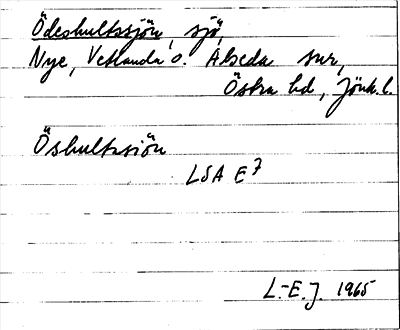 Ödeshultssjön, sjö,
Nye, Vetlanda o. Alseda snr,
Östra hd, Jönk. l.
Öshultasiön
LSA E7
L.-E. J. 1965